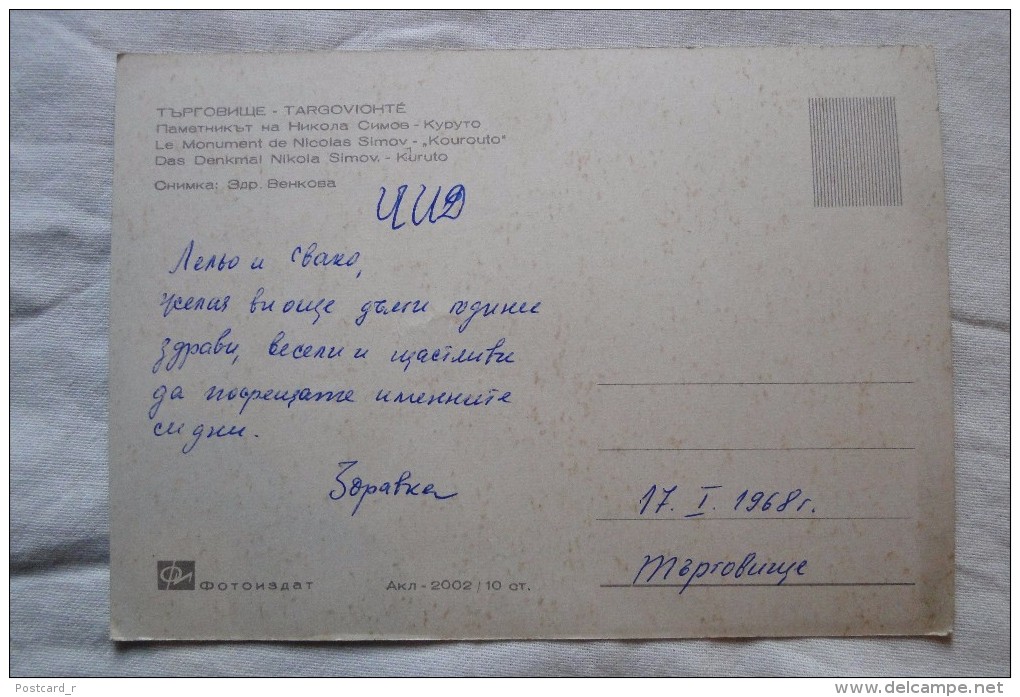 ТЪРГОВИЩЕ - TARGOVICHTÉ
Паметникът на Никола Симов - Куруто
Le Monument de Nicolas Simov - „Kourouto"
Das Denkmal Nikola Simov. - Kuruto
Снимка: Здр. Венкова
ЧИД
Лельо и Свако,
желая ви още дълги години
здрави, весели и щастливи
да посрещате именните
си дни.
Здравка
17. I. 1968 г.
Търговище
Фотоиздат
Акл - 2002 / 10 ст.
Postcard_r
www.delcampe.net